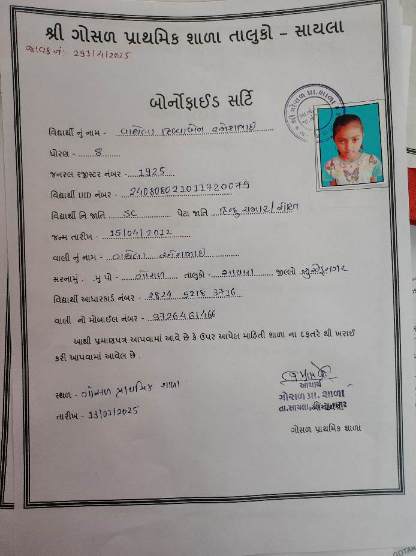 શ્રી ગોસળ પ્રાથમિક શાળા તાલુકો – સાયલા
જાવક નં: 291/4/2025
બોર્નોફાઈડ સર્ટિ
વિદ્યાર્થી નું નામ -
ધોરણ - 8
જનરલ રજીસ્ટર નંબર - 1925
વિદ્યાર્થી UID નંબર - 240808021011720079
વિદ્યાર્થી નિ જાતિ - SC પેટા જાતિ - હિન્દુ
જન્મ તારીખ - 15/04/2012
વાલી નું નામ - વાઘેલા
સરનામું . મુ પો - ગોસળ તાલુકો - સાયલા જીલ્લો સુરેન્દ્રનગર
વિદ્યાર્થી આધારકાર્ડ નંબર - 2824 5218 3716
વાલી નો મોબાઈલ નંબર - 9726461466
આથી પ્રમાણપત્ર આપવામાં આવે છે કે ઉપર આપેલ માહિતી શાળા ના દફતરે થી ખરાઈ
કરી આપવામાં આવેલ છે .
સ્થળ - ગોસળ પ્રાથમિક શાળા
તારીખ - 13/07/2025
આચાર્ય
ગોસળ પ્રા. શાળા
તા.સાયલા,
ગોસળ પ્રાથમિક શાળા